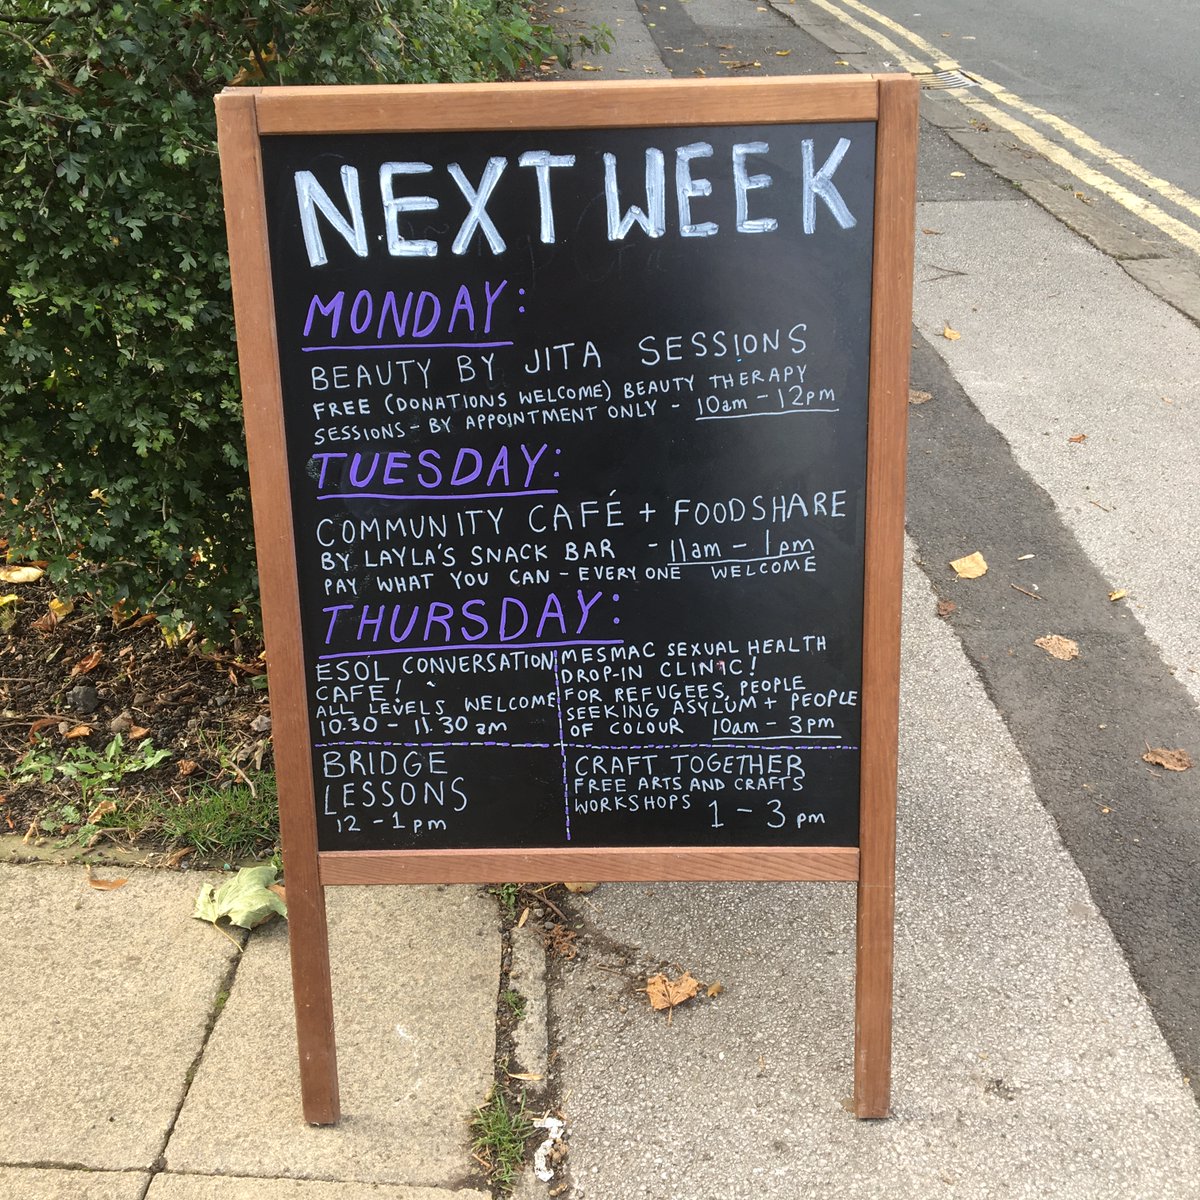 NEXT WEEK
MONDAY:
BEAUTY BY JITA SESSIONS
FREE (DONATIONS WELCOME) BEAUTY THERAPY
SESSIONS - BY APPOINTMENT ONLY - 10am - 12pm
TUESDAY:
COMMUNITY CAFÉ + FOODSHARE
BY LAYLA'S SNACK BAR - 11am - 1pm
PAY WHAT YOU CAN - EVERYONE WELCOME
THURSDAY:
ESOL CONVERSATION
CAFE!
ALL LEVELS WELCOME
10.30 - 11.30 am
MESMAC SEXUAL HEALTH
DROP-IN CLINIC!
FOR REFUGEES, PEOPLE
SEEKING ASYLUM + PEOPLE
OF COLOUR 10am - 3pm
BRIDGE
LESSONS
12 - 1 pm
CRAFT TOGETHER
FREE ARTS AND CRAFTS
WORKSHOPS 1 - 3 pm